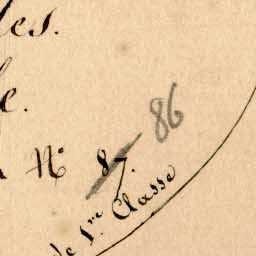 les.
le.
N° 87. 86
de 1re Classe